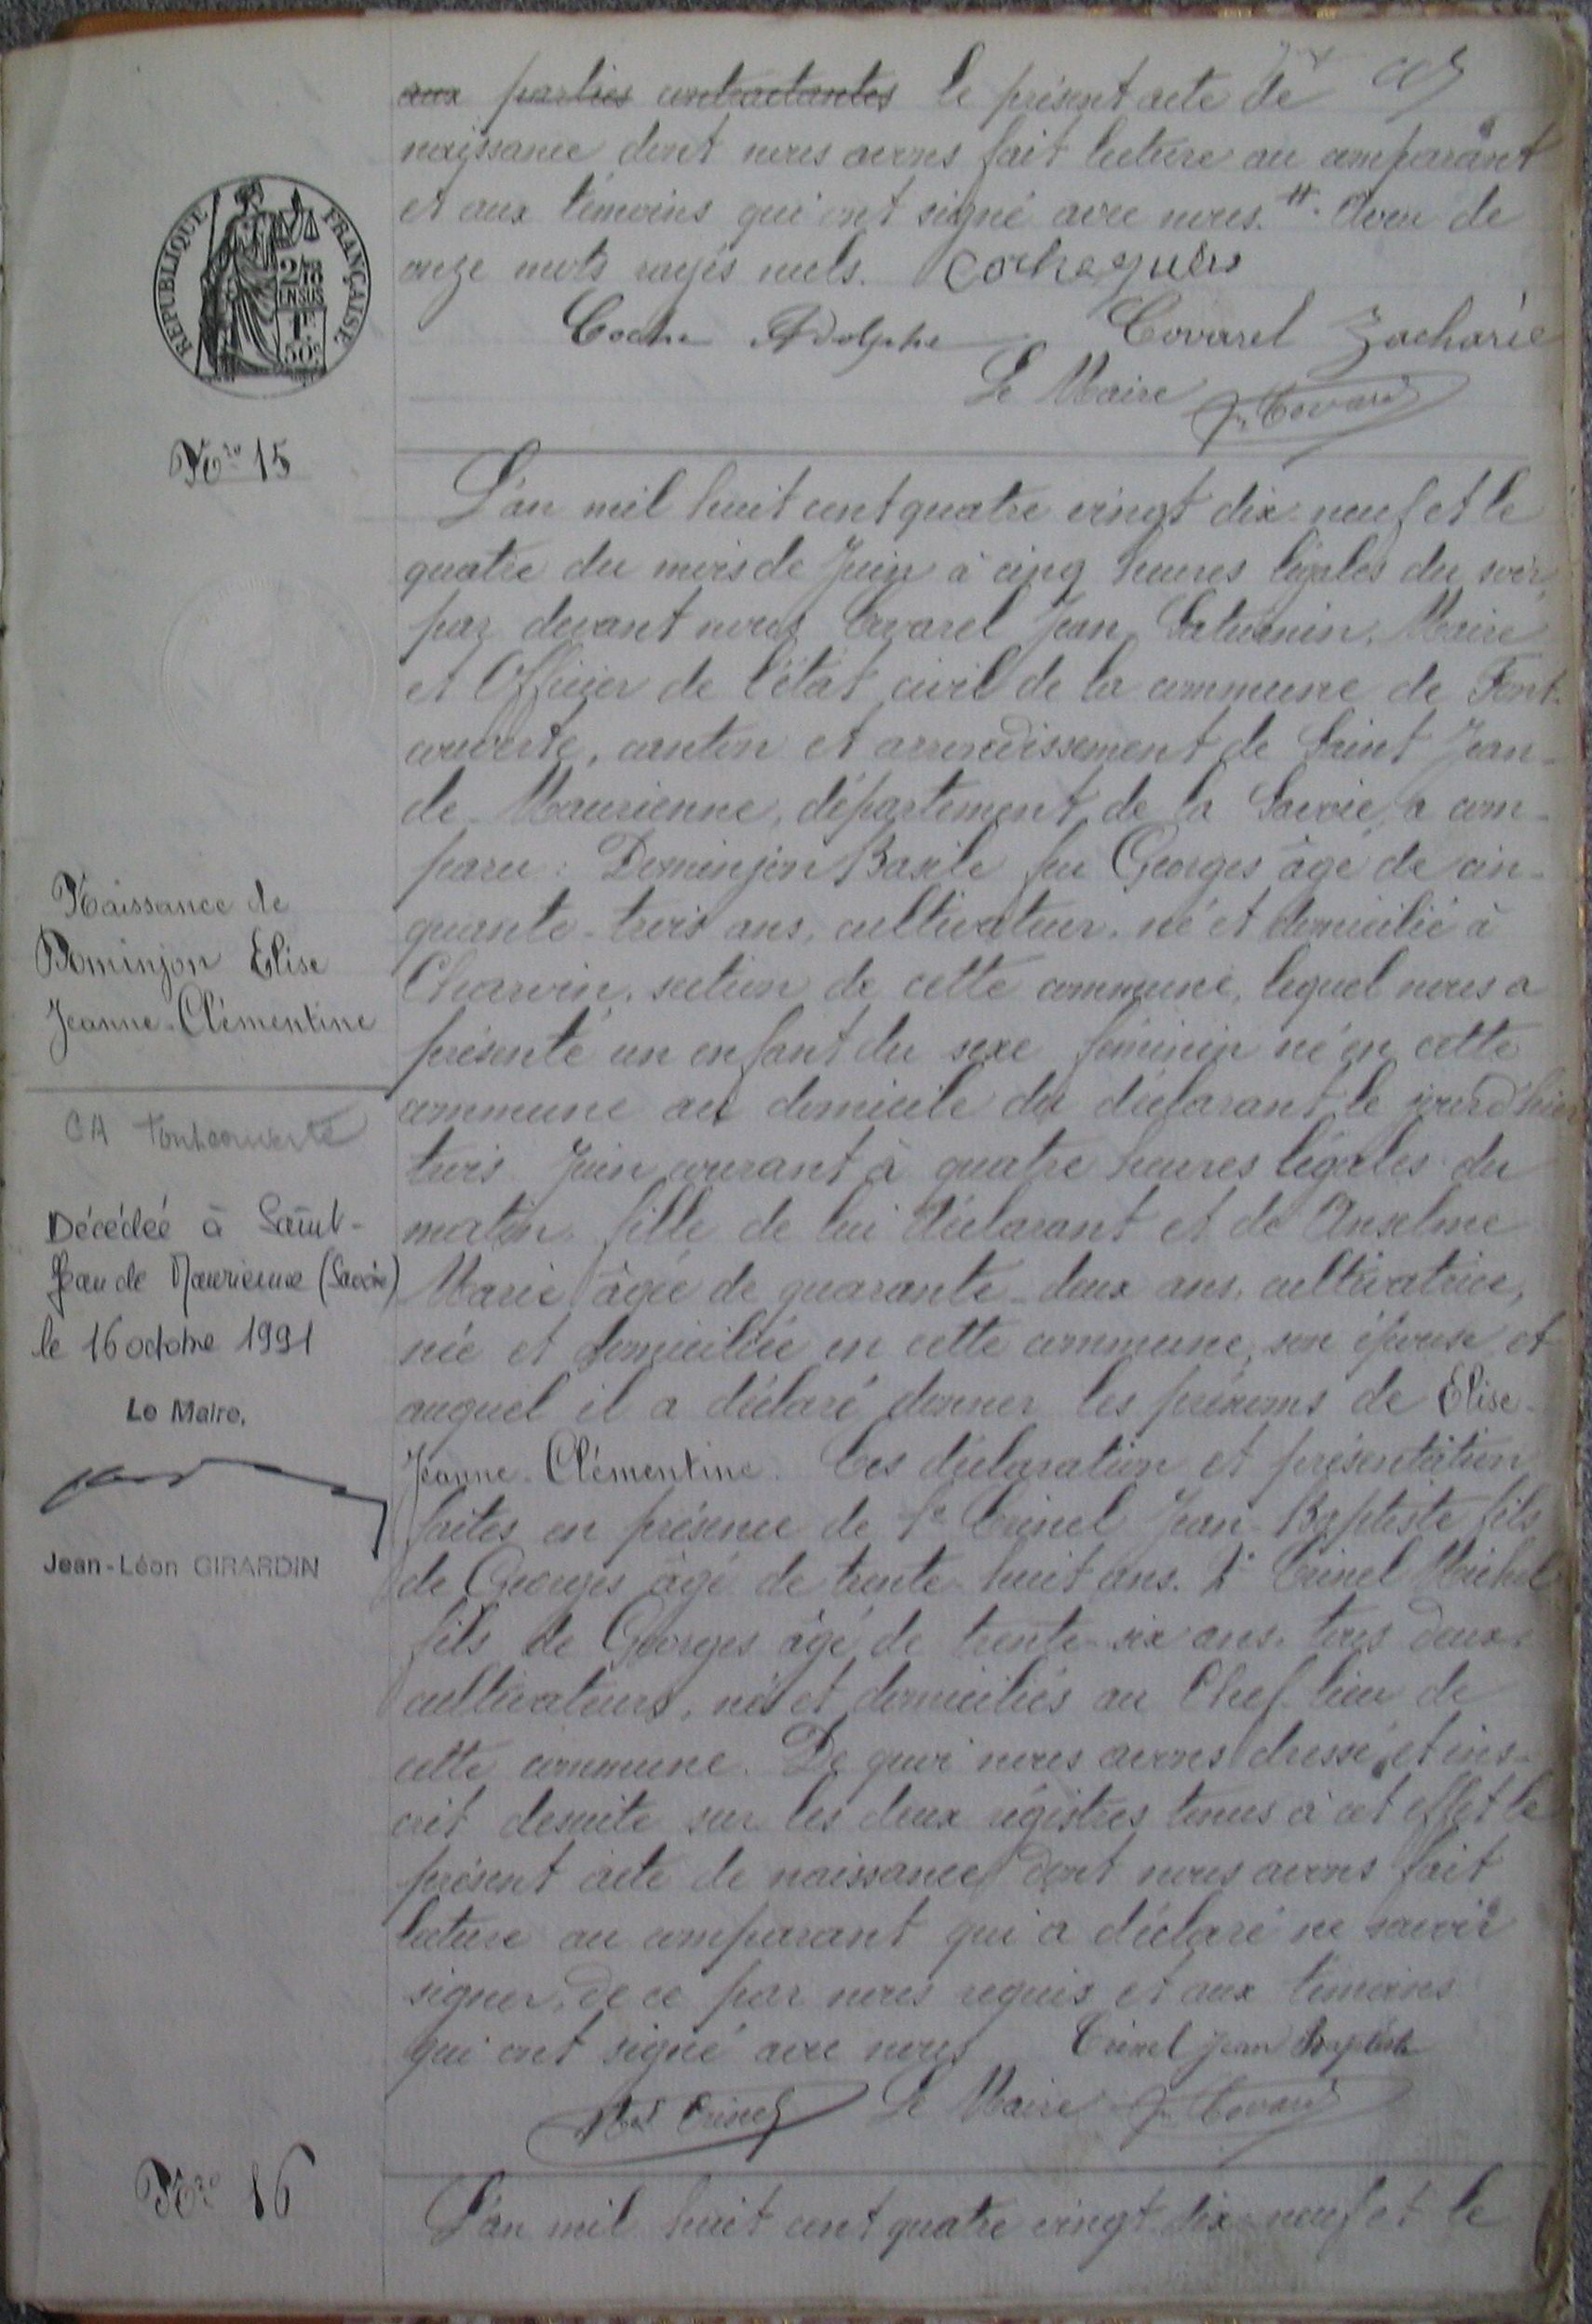 aux parties contractantes le présent acte de
naissance dont nous avons fait lecture au comparant
et aux témoins qui ont signé avec nous. #. Aveu de
onze mots rayés nuls.
Coche Adolphe Covarel Zacharie
Le Maire Jn Covarel
RÉPUBLIQUE FRANÇAISE
2/10
EN SUS
1F
50c
Nro 15
L'an mil huit cent quatre vingt dix-neuf et le
quatre du mois de Juin à cinq heures légales du soir,
par devant nous Covarel Jean Saturnin, Maire
et Officier de l'état civil de la commune de Font-
couverte, canton et arrondissement de Saint Jean-
de-Maurienne, département de la Savoie, a com-
paru : Dominjon Basile feu Georges âgé de cin-
quante-trois ans, cultivateur, né et domicilié à
Charvin, section de cette commune, lequel nous a
présenté un enfant du sexe féminin né en cette
commune au domicile du déclarant le jour d'hier
trois Juin courant à quatre heures légales du
matin, fille de lui déclarant et de Anselme
Marie âgée de quarante-deux ans, cultivatrice,
née et domiciliée en cette commune, son épouse, et
auquel il a déclaré donner les prénoms de Elise-
Jeanne-Clémentine. Ces déclaration et présentation
faites en présence de 1° Trinel Jean-Baptiste fils
de Georges âgé de trente-huit ans. 2° Trinel Michel
fils de Georges âgé de trente-six ans, tous deux
cultivateurs, nés et domiciliés au Chef-lieu de
cette commune. De quoi nous avons dressé et ins-
crit desuite sur les deux régistres tenus à cet effet le
présent acte de naissance dont nous avons fait
lecture au comparant qui a déclaré ne savoir
signer, de ce par nous requis et aux témoins
qui ont signé avec nous Trinel Jean Baptiste
Trinel Le Maire Jn Covarel
Naissance de
Dominjon Elise
Jeanne-Clémentine
CA Fontcouverte
Décédée à Saint-
Jean de Maurienne (Savoie)
le 16 octobre 1991
Le Maire,
Jean-Léon GIRARDIN
Nro 16
L'an mil huit cent quatre vingt dix-neuf et le